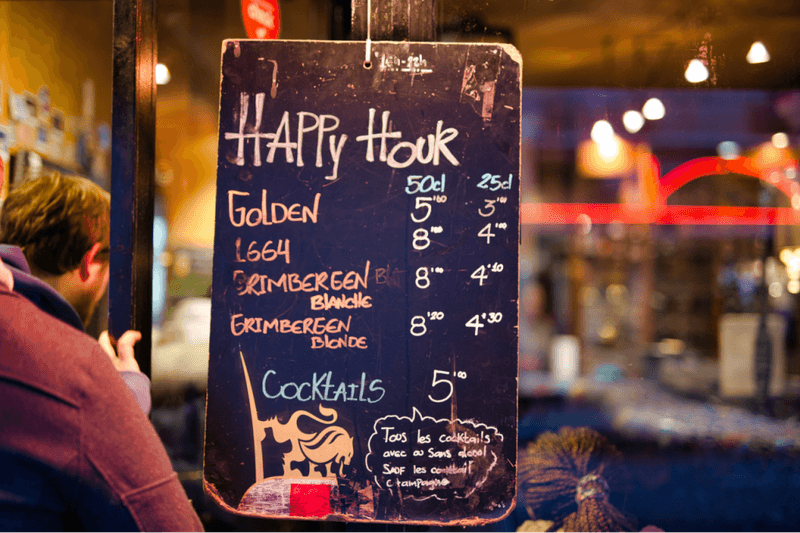 16h-22h
HAPPy HOUR
50cl 25cl
GOLDEN 5'00 3'00
1664 8'00 4'00
GRIMBERGEEN B 8'00 4'10
BLANCHE
GRIMBERGEEN 8'20 4'30
BLONDE
COCKTAILS 5'00
Tous les cocktails
avec ou sans alcool
SAUF les cocktail
champagne